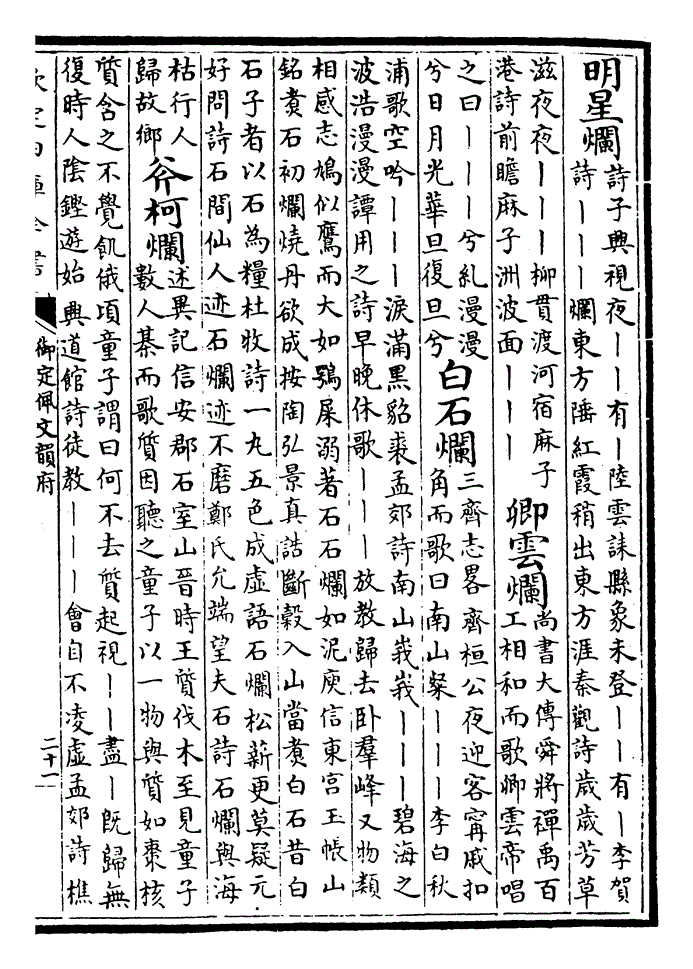 明星爛詩子興視夜丨丨有丨陸雲詠縣象未登丨丨有丨李賀
詩丨丨丨爛東方陲紅霞稍出東方涯秦觀詩歲歲芳草
滋夜夜丨丨丨柳貫渡河宿麻子
港詩前瞻麻子洲波面丨丨丨卿雲爛尚書大傳舜將禪禹百
工相和而歌卿雲帝唱
之曰丨丨丨兮糺漫漫
兮日月光華旦復旦兮白石爛三齊志畧齊桓公夜迎客甯戚扣
角而歌曰南山粲丨丨丨李白秋
浦歌空吟丨丨丨淚滿黑貂裘孟郊詩南山峩峩丨丨丨碧海之
波浩漫漫譚用之詩早晚休歌丨丨丨放教歸去卧羣峰又物類
相感志鳩似鷹而大如鴞屎溺著石石爛如泥庾信東宫玉帳山
銘煑石初爛燒丹欲成按陶弘景真誥斷穀入山當煑白石昔白
石子者以石為糧杜牧詩一丸五色成虚語石爛松薪更莫疑元
好問詩石間仙人迹石爛迹不磨鄭氏允端望夫石詩石爛與海
枯行人
歸故鄉斧柯爛述異記信安郡石室山晉時王質伐木至見童子
數人棊而歌質因聽之童子以一物與質如棗核
質含之不覺飢俄頃童子謂曰何不去質起視丨丨盡丨既歸無
復時人陰鏗遊始興道館詩徒教丨丨丨會自不凌虚孟郊詩樵
御定佩文韻府
二十一
欽定四庫全書